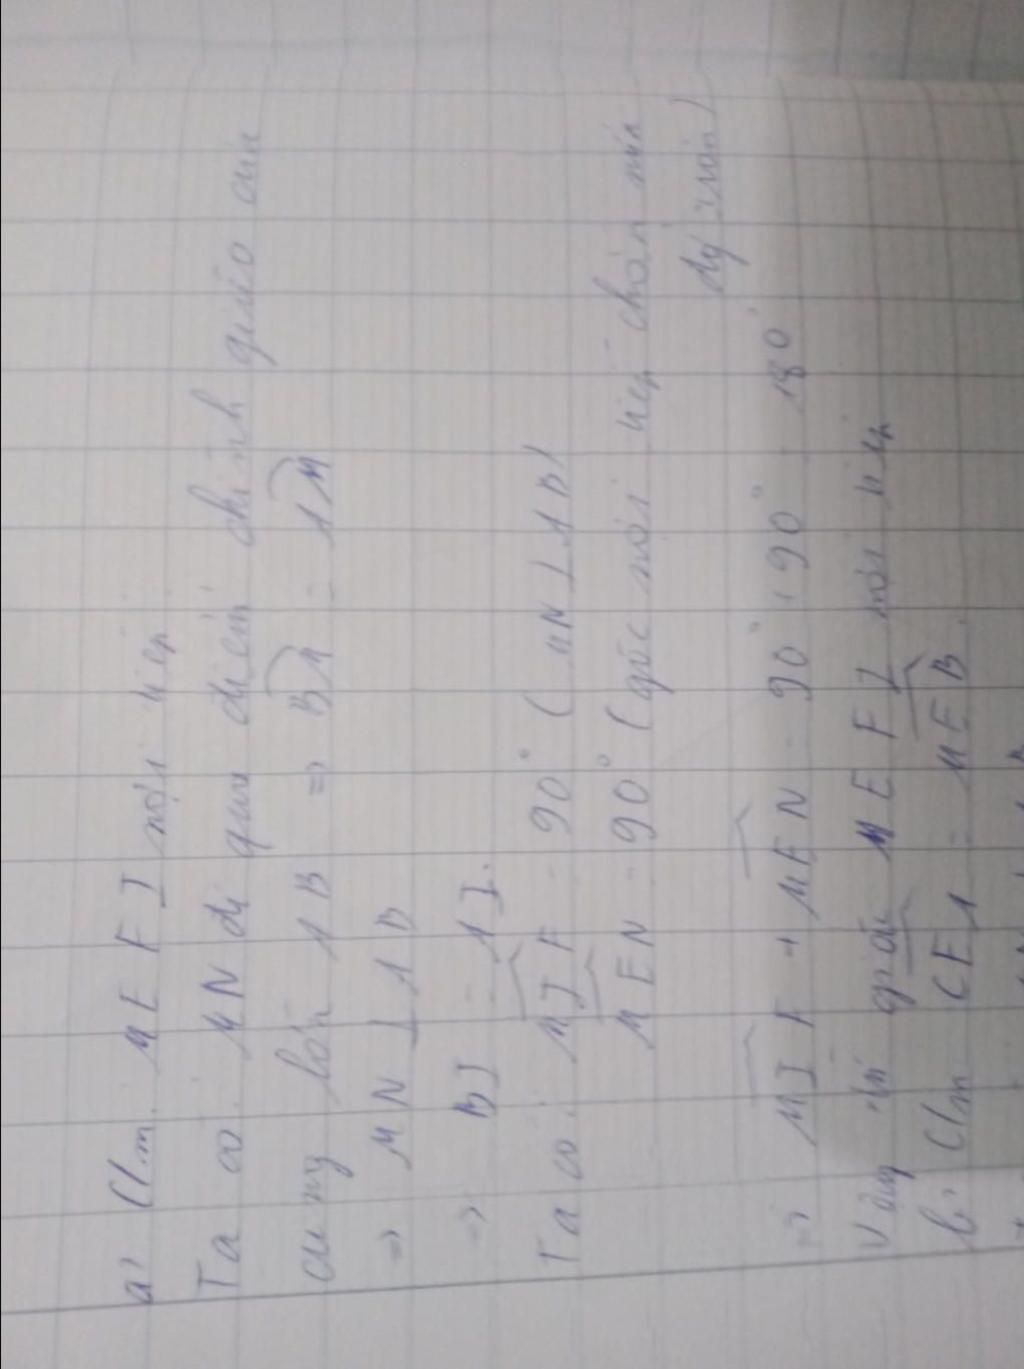 a) C/m: MEFI nội tiếp
Ta có: MN đi qua điểm chính giữa của
cung lớn AB => BM = AM
=> MN ⊥ AB
=> BI = AI.
Ta có: MIF = 90° ( MN ⊥ AB )
MEN = 90° (góc nội tiếp chắn nửa
đg tròn)
=> MIF + MEN = 90° + 90° = 180°
Vậy tứ giác MEFI nội tiếp
b) C/m CEA = MEB.